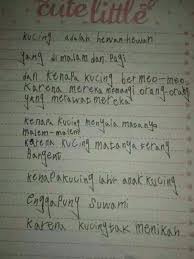 cute little
kucing adalah hewan-hewan
yang di malam dan Pagi
dan kenapa kucing bermeo-meo
Karena mereka memanggi orang-orang
yang merawat mereka
kenapa kucing menyala matanya
malem-malem
karena kucing matanya terang
Banget
kenapa kucing lahir anak kucing
Engga Puny Suwami
Karena kucing tak menikah